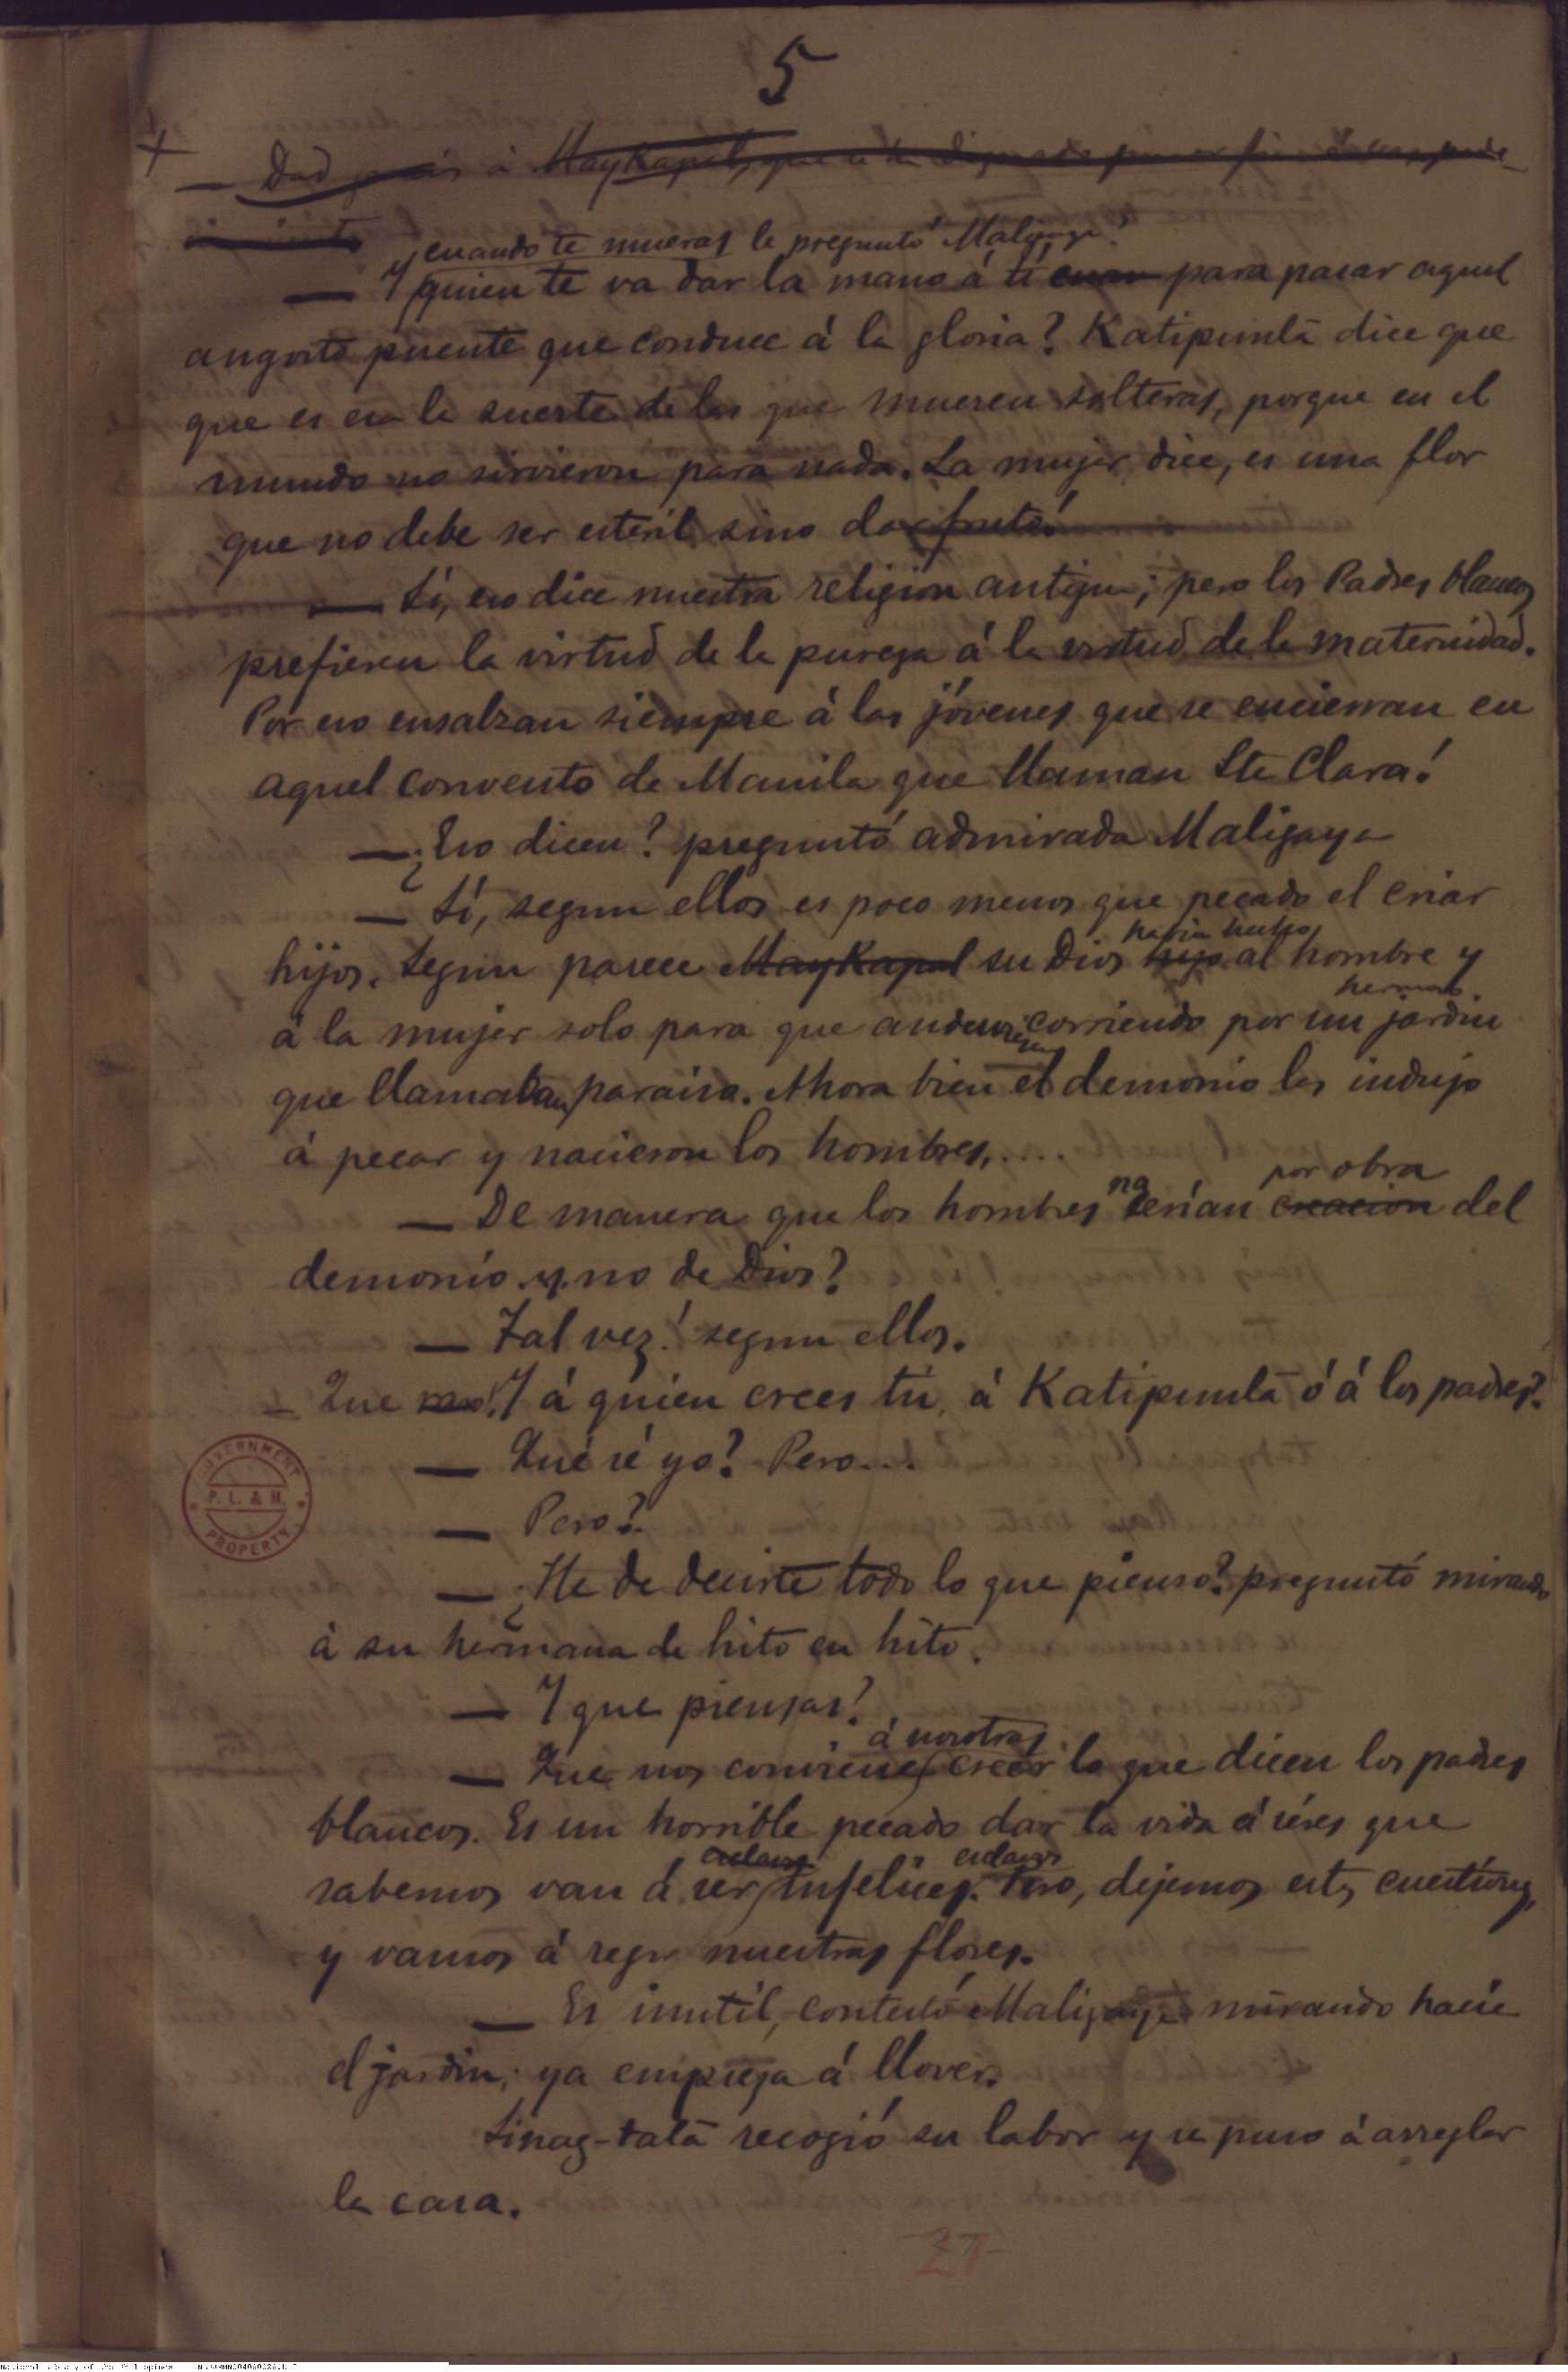 5
+ — Dad gracias á MayKapal, que
— Y cuando te mueras le preguntó Maligaya?
quien te va dar la mano á ti cuan para pasar aquel
angosto puente que conduce á la gloria? Katipunlâ dice que
que es esa la suerte de las que mueren solteras, porque en el
mundo no sirvieron para nada. La mujer, dice, es una flor
que no debe ser esteril sino dar fruto!
— Sí, eso dice nuestra religion antigua; pero los Padres blancos
prefieren la virtud de la pureza á la virtud de la maternidad.
Por eso ensalzan siempre á las jóvenes que se encierran en
aquel convento de Manila que llaman Sta Clara!
— ¿Eso dicen? preguntó admirada Maligaya
— Sí, segun ellos es poco menos que pecado el criar
hijos. Segun parece MayKapal su Dios hizo había hecho al hombre y
á la mujer solo para que anduviesen corriendo por un jardin hermoso
que llamaban paraiso. Ahora bien el demonio los indujo
á pecar y nacieron los hombres....
— De manera que los hombres nacerían creacion por obra del
demonio y no de Dios?
— Tal vez! segun ellos.
— Que raro! Y á quien crees tú, á Katipunlâ ó á los padres?
— Qué sé yo? Pero...
— Pero?
— ¿He de decirte todo lo que pienso? preguntó mirando
á su hermana de hito en hito.
— Y que piensas?
— Que nos conviene á nosotras creer lo que dicen los padres
blancos. Es un horrible pecado dar la vida á séres que
sabemos van á ser esclavos infelices. esclavos Pero, dejemos estas cuestiones,
y vamos á regar nuestras flores.
— Es inutil, contestó Maligaya mirando hacia
el jardin; ya empieza á llover.
Sinag-talà recogió su labor y se puso á arreglar
la casa.
GOVERNMENT
P. L. & M.
PROPERTY
27
National Library of the Philippines